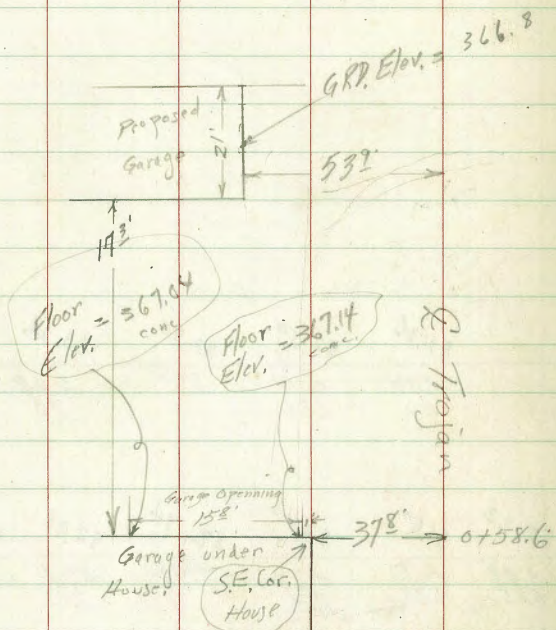 GRD. Elev. = 366.8
Proposed
Garage
21'
53⁹'
17³'
Floor
Elev. = 367.04
conc.
Floor
Elev. = 367.14
conc.
℄ Trojan
Garage Openning
15⁸'
37⁸'
0+58.6
Garage under
House.
S.E. Cor.
House